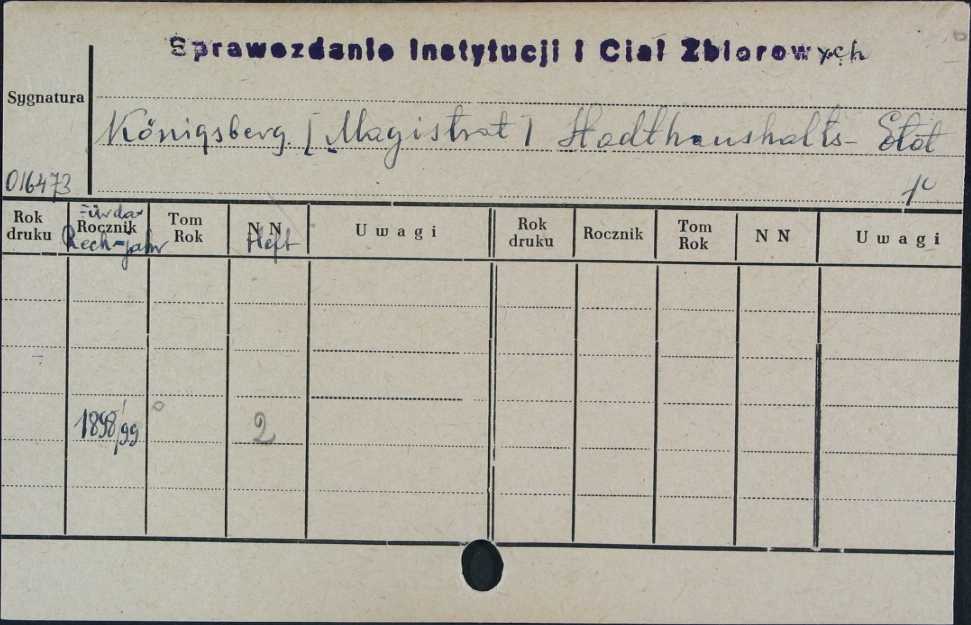 Sprawozdanie Instytucji i Ciał Zbiorowych
Sygnatura
Königsberg. [Magistrat] Stadthaushalts- Etat
016473
1°
Rok druku
Für das Rocznik Rech-jahr
Tom Rok
N N Heft
Uwagi
Rok druku
Rocznik
Tom Rok
N N
Uwagi
1898/99
2